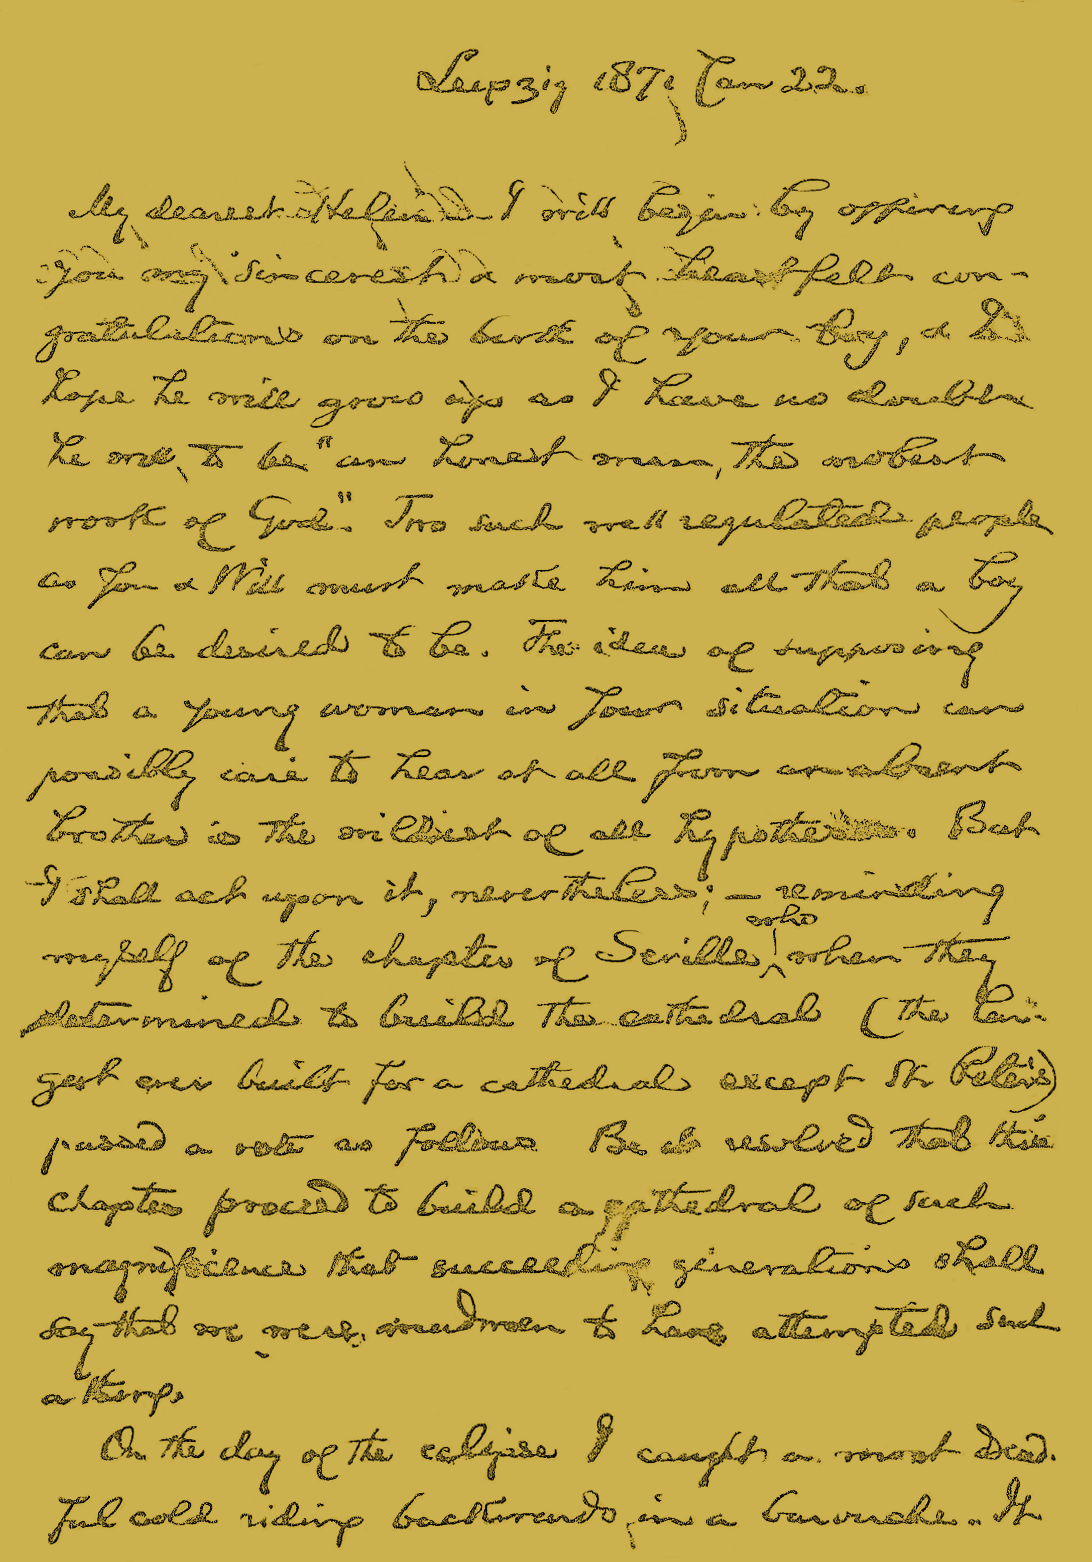 Leipzig 1871 Jan 22.
My dearest Helen I will begin by offering
you my sincerest & most heartfelt con-
gratulations on the birth of your boy, & I
hope he will grow up as I have no doubt
he will, to be "an honest man, the noblest
work of God". Two such well regulated people
as you & Will must make him all that a boy
can be desired to be. The idea of supposing
that a young woman in your situation can
possibly care to hear at all from an absent
brother is the wildest of all hypotheses. But
I shall act upon it, nevertheless; — reminding
myself of the chapter of Seville, who when they
determined to build the cathedral (the lar-
gest ever built for a cathedral except St. Peter's)
passed a vote as follows Be it resolved that this
chapter proceed to build a cathedral of such
magnificence that succeeding generations shall
say that we were madmen to have attempted such
a thing.
On the day of the eclipse I caught a most dread-
ful cold riding backwards in a barouche. It